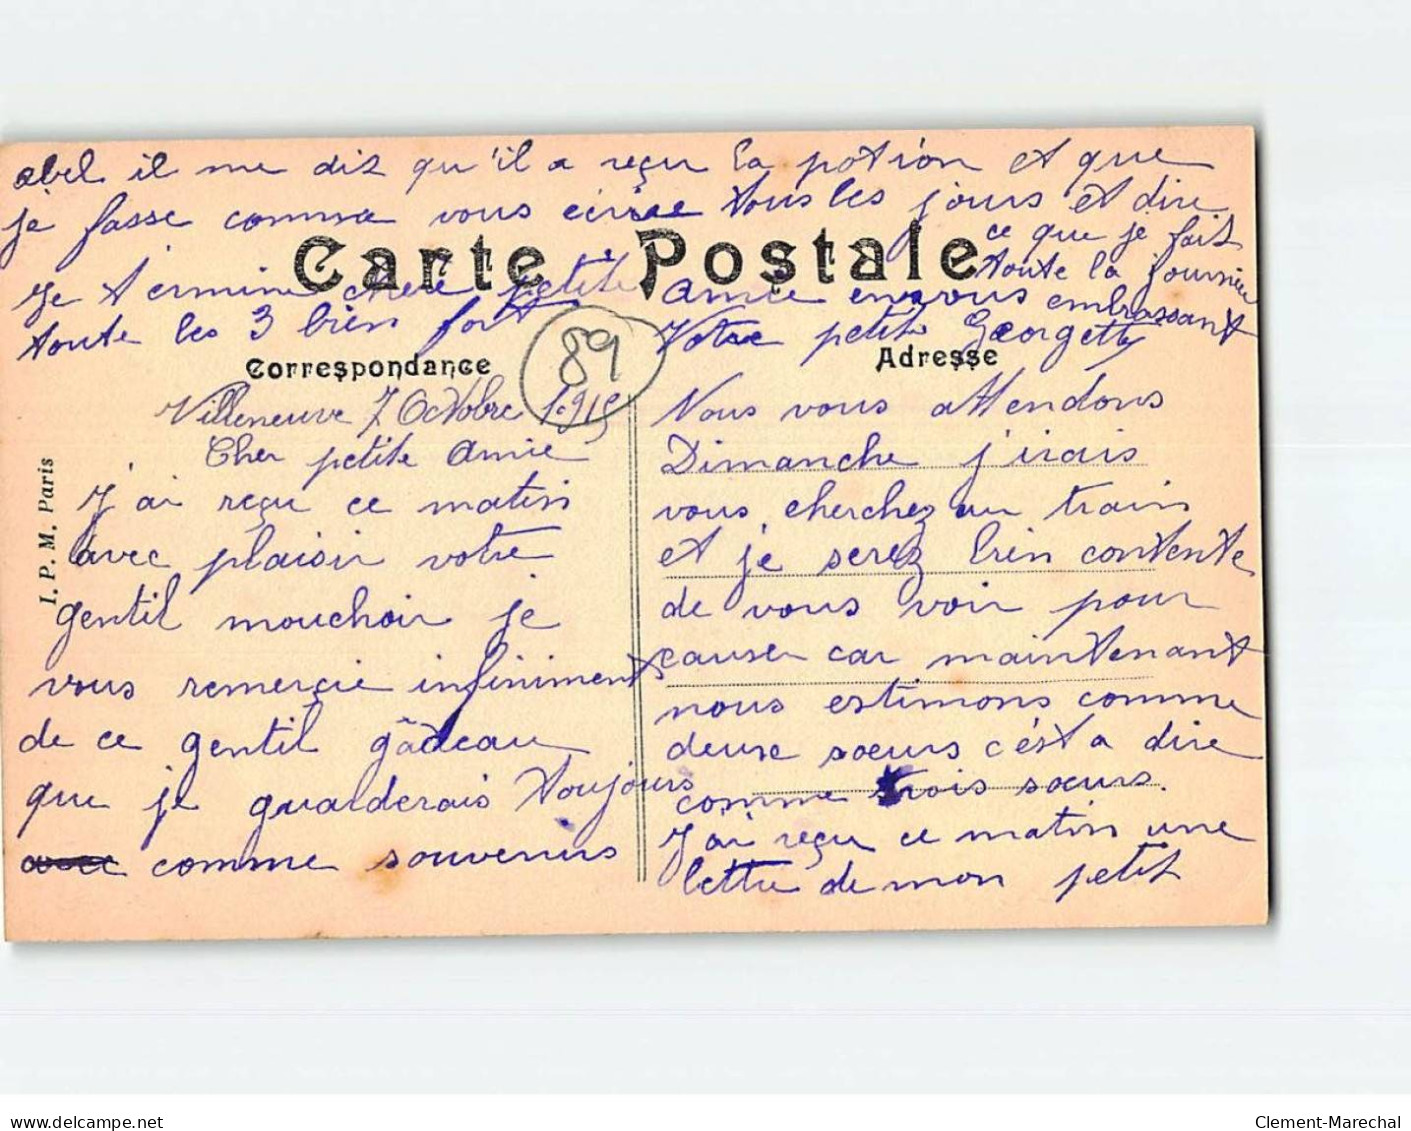 abel il me dit qu'il a reçu la potion et que
je fasse comme vous écrire tous les jours et dire
ce que je fait
toute la journée
Carte Postale
Je termine chere petite amie en vous embrassant
toute les 3 bien fort Votre petite Georgette
89
Correspondance
Adresse
Villeneuve 7 Octobre 1915
Cher petite amie
J'ai reçu ce matin
avec plaisir votre
gentil mouchoir je
vous remerçie infiniment
de ce gentil gâdeau
que je guarderais toujours
comme souvenirs
I. P. M. Paris
Nous vous attendons
Dimanche j'irais
vous cherchez au train
et je serez bien contente
de vous voir pour
causer car maintenant
nous estimons comme
deuse sœurs c'ést a dire
comme trois sœurs.
J'ai reçu ce matin une
lettre de mon petit
Clement-Marechal
www.delcampe.net